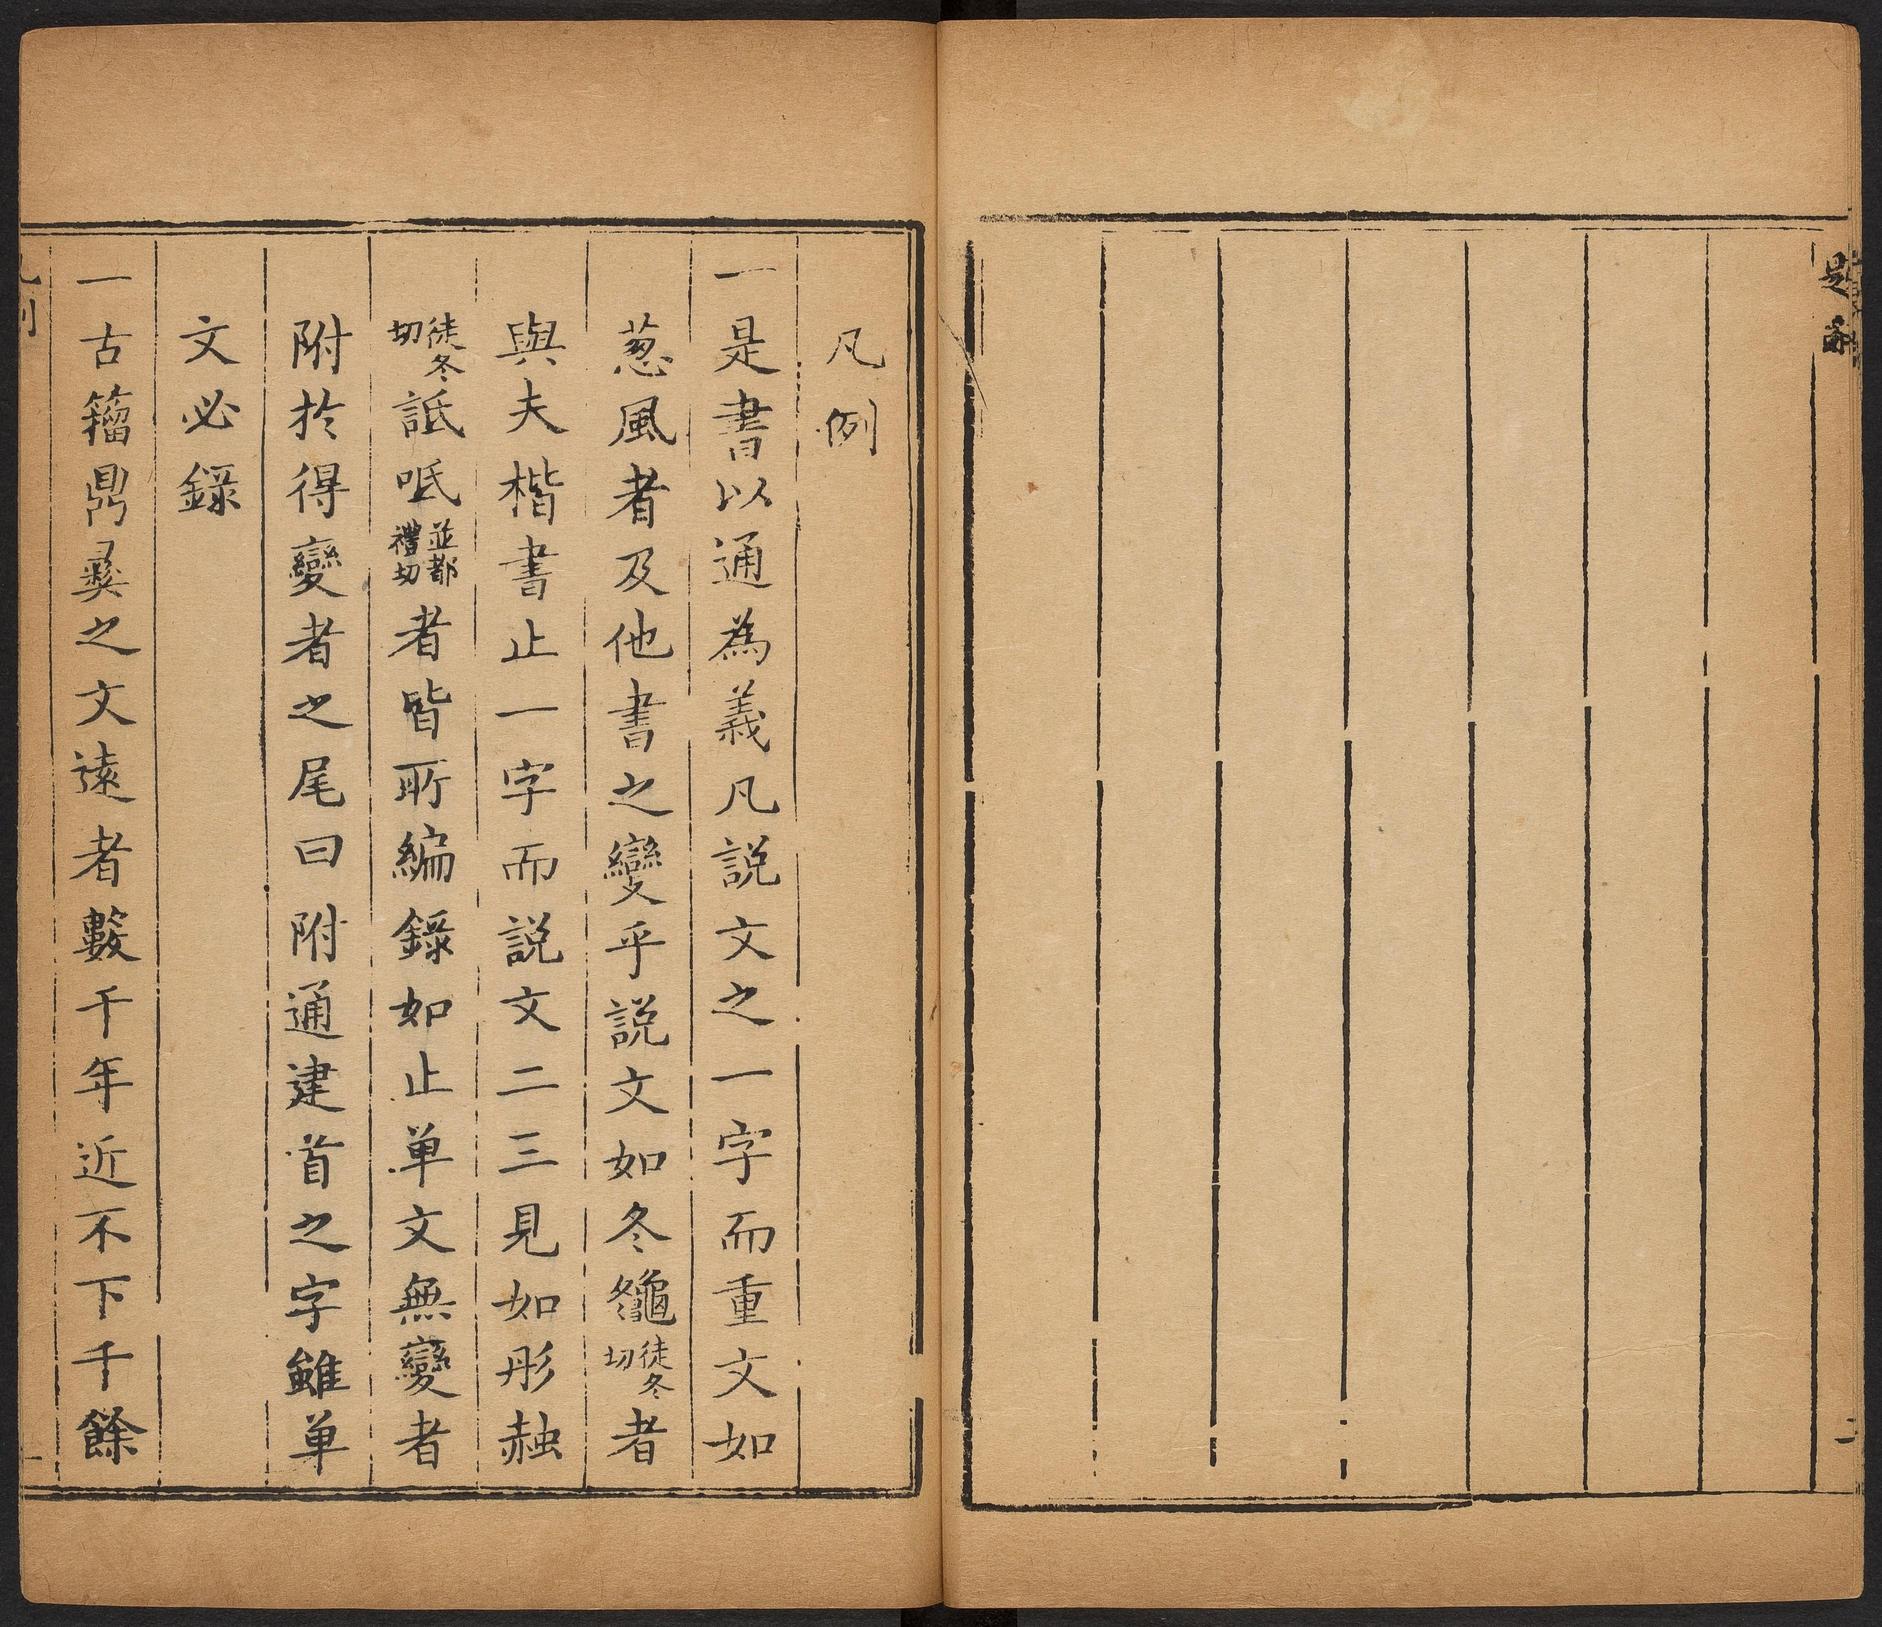 凡例
一是書以通為義凡說文之一字而重文如
蔥風者及他書之變乎說文如冬䶱徒冬切者
與夫楷書止一字而說文二三見如彤赨
徒冬切詆呧並都禮切者皆所編錄如止单文無變者
附於得變者之尾曰附通建首之字雖单
文必錄
一古籀鼎彝之文遠者數千年近不下千餘
二
一